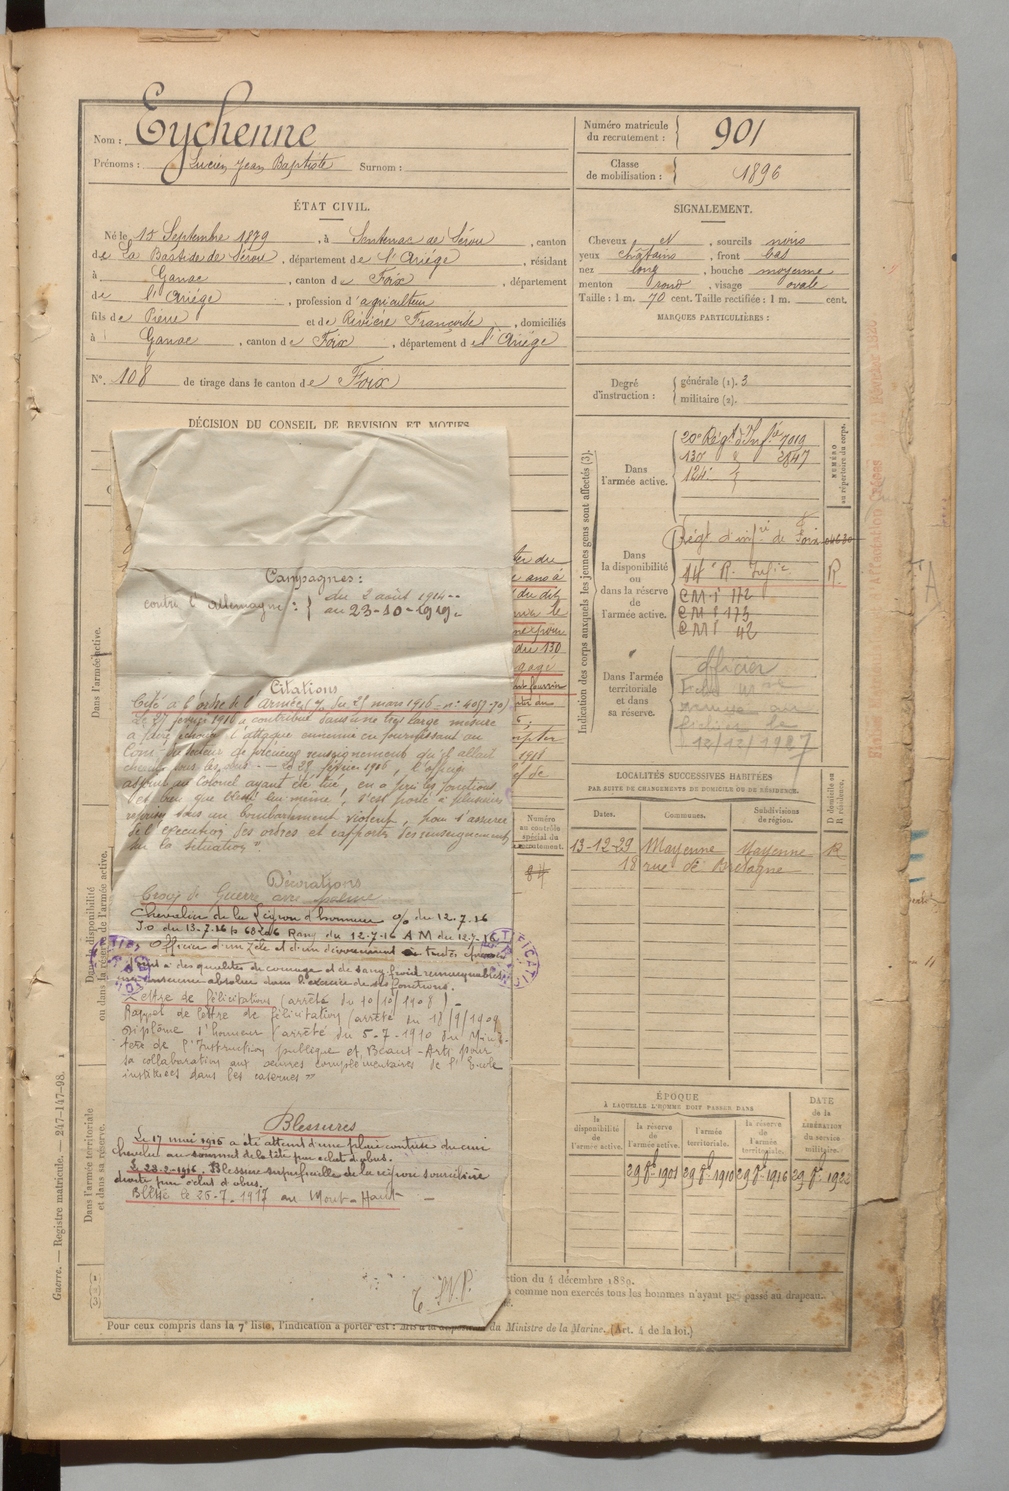 Nom : Eychenne
Prénoms : Lucien Jean Baptiste Surnom :
Numéro matricule du recrutement : 901
Classe de mobilisation : 1896
ÉTAT CIVIL.
Né le 15 Septembre 1879, à Sentenac de Sérou, canton
de La Bastide de Sérou, département de l'Ariège, résidant
à Ganac, canton de Foix, département
de l'Ariège, profession d'agriculteur
fils de Pierre et de Rivière Françoise, domiciliés
à Ganac, canton de Foix, département de l'Ariège
N°. 108 de tirage dans le canton de Foix
SIGNALEMENT.
Cheveux et, sourcils noirs
yeux châtains, front bas
nez long, bouche moyenne
menton rond, visage ovale
Taille : 1 m. 70 cent. Taille rectifiée : 1 m. cent.
MARQUES PARTICULIÈRES :
Degré d'instruction : générale (1). 3
militaire (2).
DÉCISION DU CONSEIL DE REVISION ET MOTIFS
Campagnes :
contre l'Allemagne : du 2 août 1914 --
au 23-10-1919.
Citations
Cité à l'ordre de l'Armée
Le 27 février 1916 a contribué dans une très large mesure
à faire échouer l'attaque ennemie en fournissant au
de précieux renseignements qu'il allait
chercher sous les obus. - le 28 février 1916, l'officier
adjoint au Colonel ayant été tué, en a pris les fonctions
et bien que blessé lui même, s'est porté à plusieurs
reprises sous un bombardement violent, pour s'assurer
de l'exécution des ordres et rapporter des renseignements
sur la situation".
Décorations
Croix de Guerre avec palme
Chevalier de la Légion d'honneur du 12.7.16
J.O du 13-7-16 p 6226 Rang du 12-7-16 A M du 12-7-16
Officier d'un zèle et d'un dévouement à toutes épreuves
joint à des qualités de courage et de sang froid remarquables
une conscience absolue dans l'exercice de ses fonctions.
Lettre de félicitations (arrêté du 10/10/1908) -
Rappel de lettre de félicitation (arrêté du 18/9/1909
Diplôme d'honneur (arrêté du 5-7-1910 du Minis-
tère de l'Instruction publique et Beaux-Arts pour
sa collaboration aux œuvres complémentaires de l'Ecole
instituées dans les casernes"
Blessures
Le 17 mai 1915 a été atteint d'une plaie contuse du cuir
chevelu au sommet de la tête par éclat d'obus.
Le 28-2-1916. Blessure superficielle de la région sourcilière
droite par éclat d'obus.
Blessé le 25-7-1917 au Mont-Haut -
T.S.V.P.
Indication des corps auxquels les jeunes gens sont affectés (3).
NUMÉRO au répertoire du corps.
Dans l'armée active.
20e Régt d'Infie 7019
130 " 2847
124 "
Dans la disponibilité ou dans la réserve de l'armée active.
Régt d'infie de Foix
14e R. Infie R.
CM1 172
CM1 173
CM1 42
Dans l'armée territoriale et dans sa réserve.
Officier
12/12/1927
LOCALITÉS SUCCESSIVES HABITÉES
PAR SUITE DE CHANGEMENTS DE DOMICILE OU DE RÉSIDENCE.
D domicile ou R résidence.
Dates. Communes. Subdivisions de région.
13-12-29 Mayenne Mayenne R
18 rue de Bretagne
Numéro au contrôle spécial du recrutement.
ÉPOQUE
À LAQUELLE L'HOMME DOIT PASSER DANS
la disponibilité de l'armée active. la réserve de l'armée active. l'armée territoriale. la réserve de l'armée territoriale.
DATE de la LIBÉRATION du service militaire.
29 8bre 1901 29 8bre 1910 29 8bre 1916 29 8bre 1922
ction du 4 décembre 1889.
comme non exercés tous les hommes n'ayant pas passé au drapeau.
Pour ceux compris dans la 7e liste, l'indication à porter est : Mis à la disposition du Ministre de la Marine. (Art. 4 de la loi.)
Dans l'armée active.
Dans la disponibilité ou dans la réserve de l'armée active.
Dans l'armée territoriale et dans sa réserve.
Guerre. — Registre matricule. — 247-147-98.